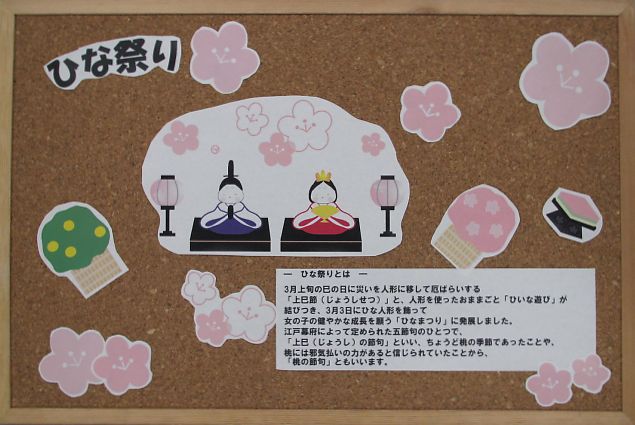 ひな祭り
― ひな祭りとは ―
3月上旬の巳の日に災いを人形に移して厄ばらいする
「上巳節（じょうしせつ）」と、人形を使ったおままごと「ひいな遊び」が
結びつき、3月3日にひな人形を飾って
女の子の健やかな成長を願う「ひなまつり」に発展しました。
江戸幕府によって定められた五節句のひとつで、
「上巳（じょうし）の節句」といい、ちょうど桃の季節であったことや、
桃には邪気払いの力があると信じられていたことから、
「桃の節句」ともいいます。